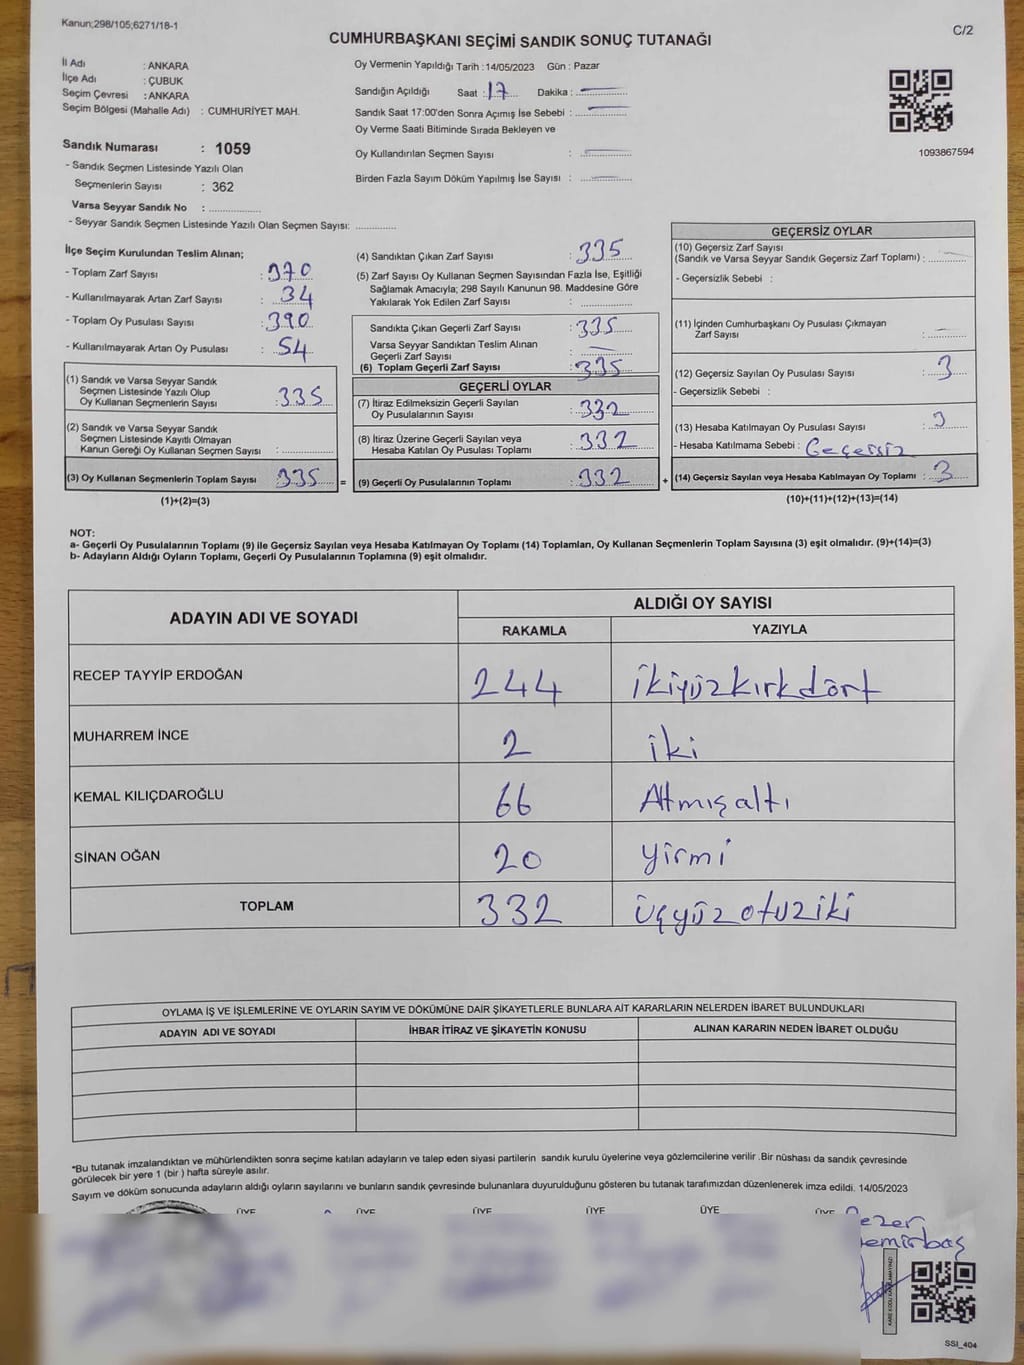 Kanun;298/105;6271/18-1
C/2
CUMHURBAŞKANI SEÇİMİ SANDIK SONUÇ TUTANAĞI
İl Adı : ANKARA
İlçe Adı : ÇUBUK
Seçim Çevresi : ANKARA
Seçim Bölgesi (Mahalle Adı) : CUMHURİYET MAH.
Sandık Numarası : 1059
- Sandık Seçmen Listesinde Yazılı Olan
Seçmenlerin Sayısı : 362
Varsa Seyyar Sandık No : ..............
- Seyyar Sandık Seçmen Listesinde Yazılı Olan Seçmen Sayısı: ...........
Oy Vermenin Yapıldığı Tarih :14/05/2023 Gün : Pazar
Sandığın Açıldığı Saat : 17 Dakika :
Sandık Saat 17:00'den Sonra Açımış İse Sebebi :
Oy Verme Saati Bitiminde Sırada Bekleyen ve
Oy Kullandırılan Seçmen Sayısı :
Birden Fazla Sayım Döküm Yapılmış İse Sayısı :
1093867594
İlçe Seçim Kurulundan Teslim Alınan;
- Toplam Zarf Sayısı : 370
- Kullanılmayarak Artan Zarf Sayısı : 34
- Toplam Oy Pusulası Sayısı : 390
- Kullanılmayarak Artan Oy Pusulası : 54
(1) Sandık ve Varsa Seyyar Sandık
Seçmen Listesinde Yazılı Olup
Oy Kullanan Seçmenlerin Sayısı : 335
(2) Sandık ve Varsa Seyyar Sandık
Seçmen Listesinde Kayıtlı Olmayan
Kanun Gereği Oy Kullanan Seçmen Sayısı :
(3) Oy Kullanan Seçmenlerin Toplam Sayısı 335 =
(1)+(2)=(3)
(4) Sandıktan Çıkan Zarf Sayısı : 335
(5) Zarf Sayısı Oy Kullanan Seçmen Sayısından Fazla İse, Eşitliği
Sağlamak Amacıyla; 298 Sayılı Kanunun 98. Maddesine Göre
Yakılarak Yok Edilen Zarf Sayısı :
Sandıkta Çıkan Geçerli Zarf Sayısı : 335
Varsa Seyyar Sandıktan Teslim Alınan
Geçerli Zarf Sayısı :
(6) Toplam Geçerli Zarf Sayısı : 335
GEÇERLİ OYLAR
(7) İtiraz Edilmeksizin Geçerli Sayılan
Oy Pusulalarının Sayısı : 332
(8) İtiraz Üzerine Geçerli Sayılan veya
Hesaba Katılan Oy Pusulası Toplamı : 332
(9) Geçerli Oy Pusulalarının Toplamı : 332 +
GEÇERSİZ OYLAR
(10) Geçersiz Zarf Sayısı
(Sandık ve Varsa Seyyar Sandık Geçersiz Zarf Toplamı) :
- Geçersizlik Sebebi :
(11) İçinden Cumhurbaşkanı Oy Pusulası Çıkmayan
Zarf Sayısı :
(12) Geçersiz Sayılan Oy Pusulası Sayısı : 3
- Geçersizlik Sebebi :
(13) Hesaba Katılmayan Oy Pusulası Sayısı : 3
- Hesaba Katılmama Sebebi : Geçersiz
(14) Geçersiz Sayılan veya Hesaba Katılmayan Oy Toplamı : 3
(10)+(11)+(12)+(13)=(14)
NOT:
a- Geçerli Oy Pusulalarının Toplamı (9) ile Geçersiz Sayılan veya Hesaba Katılmayan Oy Toplamı (14) Toplamları, Oy Kullanan Seçmenlerin Toplam Sayısına (3) eşit olmalıdır. (9)+(14)=(3)
b- Adayların Aldığı Oyların Toplamı, Geçerli Oy Pusulalarının Toplamına (9) eşit olmalıdır.
ADAYIN ADI VE SOYADI
ALDIĞI OY SAYISI
RAKAMLA YAZIYLA
RECEP TAYYİP ERDOĞAN 244 ikiyüzkırkdört
MUHARREM İNCE 2 iki
KEMAL KILIÇDAROĞLU 66 Atmışaltı
SİNAN OĞAN 20 yirmi
TOPLAM 332 üçyüzotuziki
OYLAMA İŞ VE İŞLEMLERİNE VE OYLARIN SAYIM VE DÖKÜMÜNE DAİR ŞİKAYETLERLE BUNLARA AİT KARARLARIN NELERDEN İBARET BULUNDUKLARI
ADAYIN ADI VE SOYADI İHBAR İTİRAZ VE ŞİKAYETİN KONUSU ALINAN KARARIN NEDEN İBARET OLDUĞU
*Bu tutanak imzalandıktan ve mühürlendikten sonra seçime katılan adayların ve talep eden siyasi partilerin sandık kurulu üyelerine veya gözlemcilerine verilir .Bir nüshası da sandık çevresinde
görülecek bir yere 1 (bir ) hafta süreyle asılır.
Sayım ve döküm sonucunda adayların aldığı oyların sayılarını ve bunların sandık çevresinde bulunanlara duyurulduğunu gösteren bu tutanak tarafımızdan düzenlenerek imza edildi. 14/05/2023
ÜYE ÜYE ÜYE ÜYE ÜYE ÜYE
SSI_404